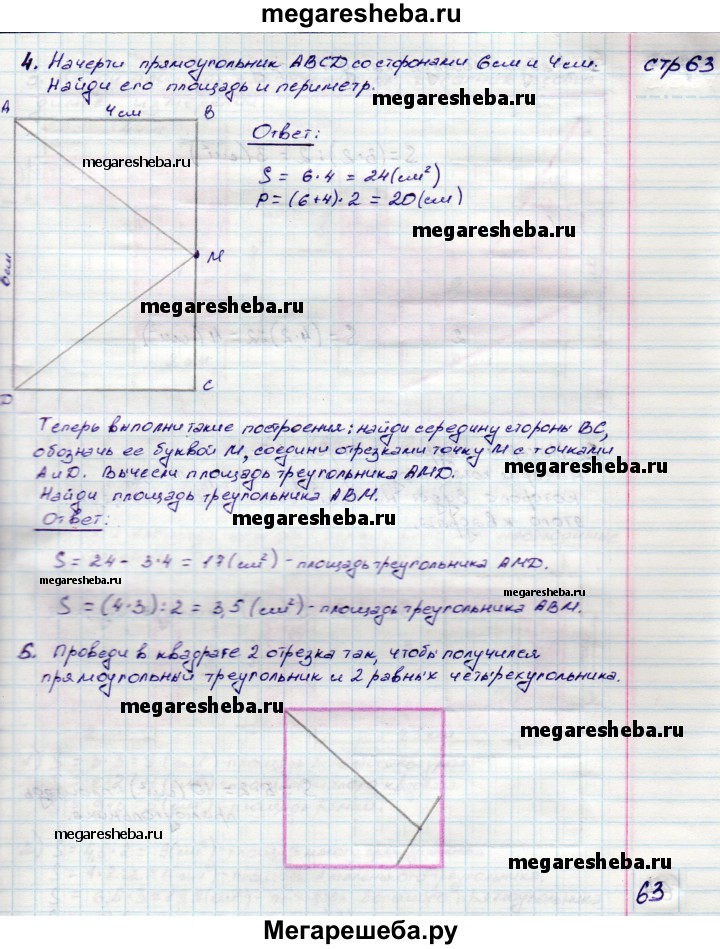 megaresheba.ru
4. Начерти прямоугольник ABCD со сторонами 6см и 4см.
стр 63
Найди его площадь и периметр.
megaresheba.ru
A 4см B
Ответ:
megaresheba.ru
S = 6·4 = 24(см²)
P = (6+4)·2 = 20(см)
megaresheba.ru
6см
M
megaresheba.ru
D C
Теперь выполни такие построения: найди середину стороны BC,
обозначь ее буквой M, соедини отрезками точку M с точками
A и D. Вычесли площадь треугольника AMD.
megaresheba.ru
Найди площадь треугольника ABM.
megaresheba.ru
Ответ:
S = 24 - 3·4 = 17(см²) - площадь треугольника AMD.
megaresheba.ru
megaresheba.ru
S = (4·3):2 = 3,5(см²) - площадь треугольника ABM.
5. Проведи в квадрате 2 отрезка так, чтобы получился
прямоугольный треугольник и 2 равных четырехугольника.
megaresheba.ru
megaresheba.ru
megaresheba.ru
megaresheba.ru
63
Мегарешеба.ру